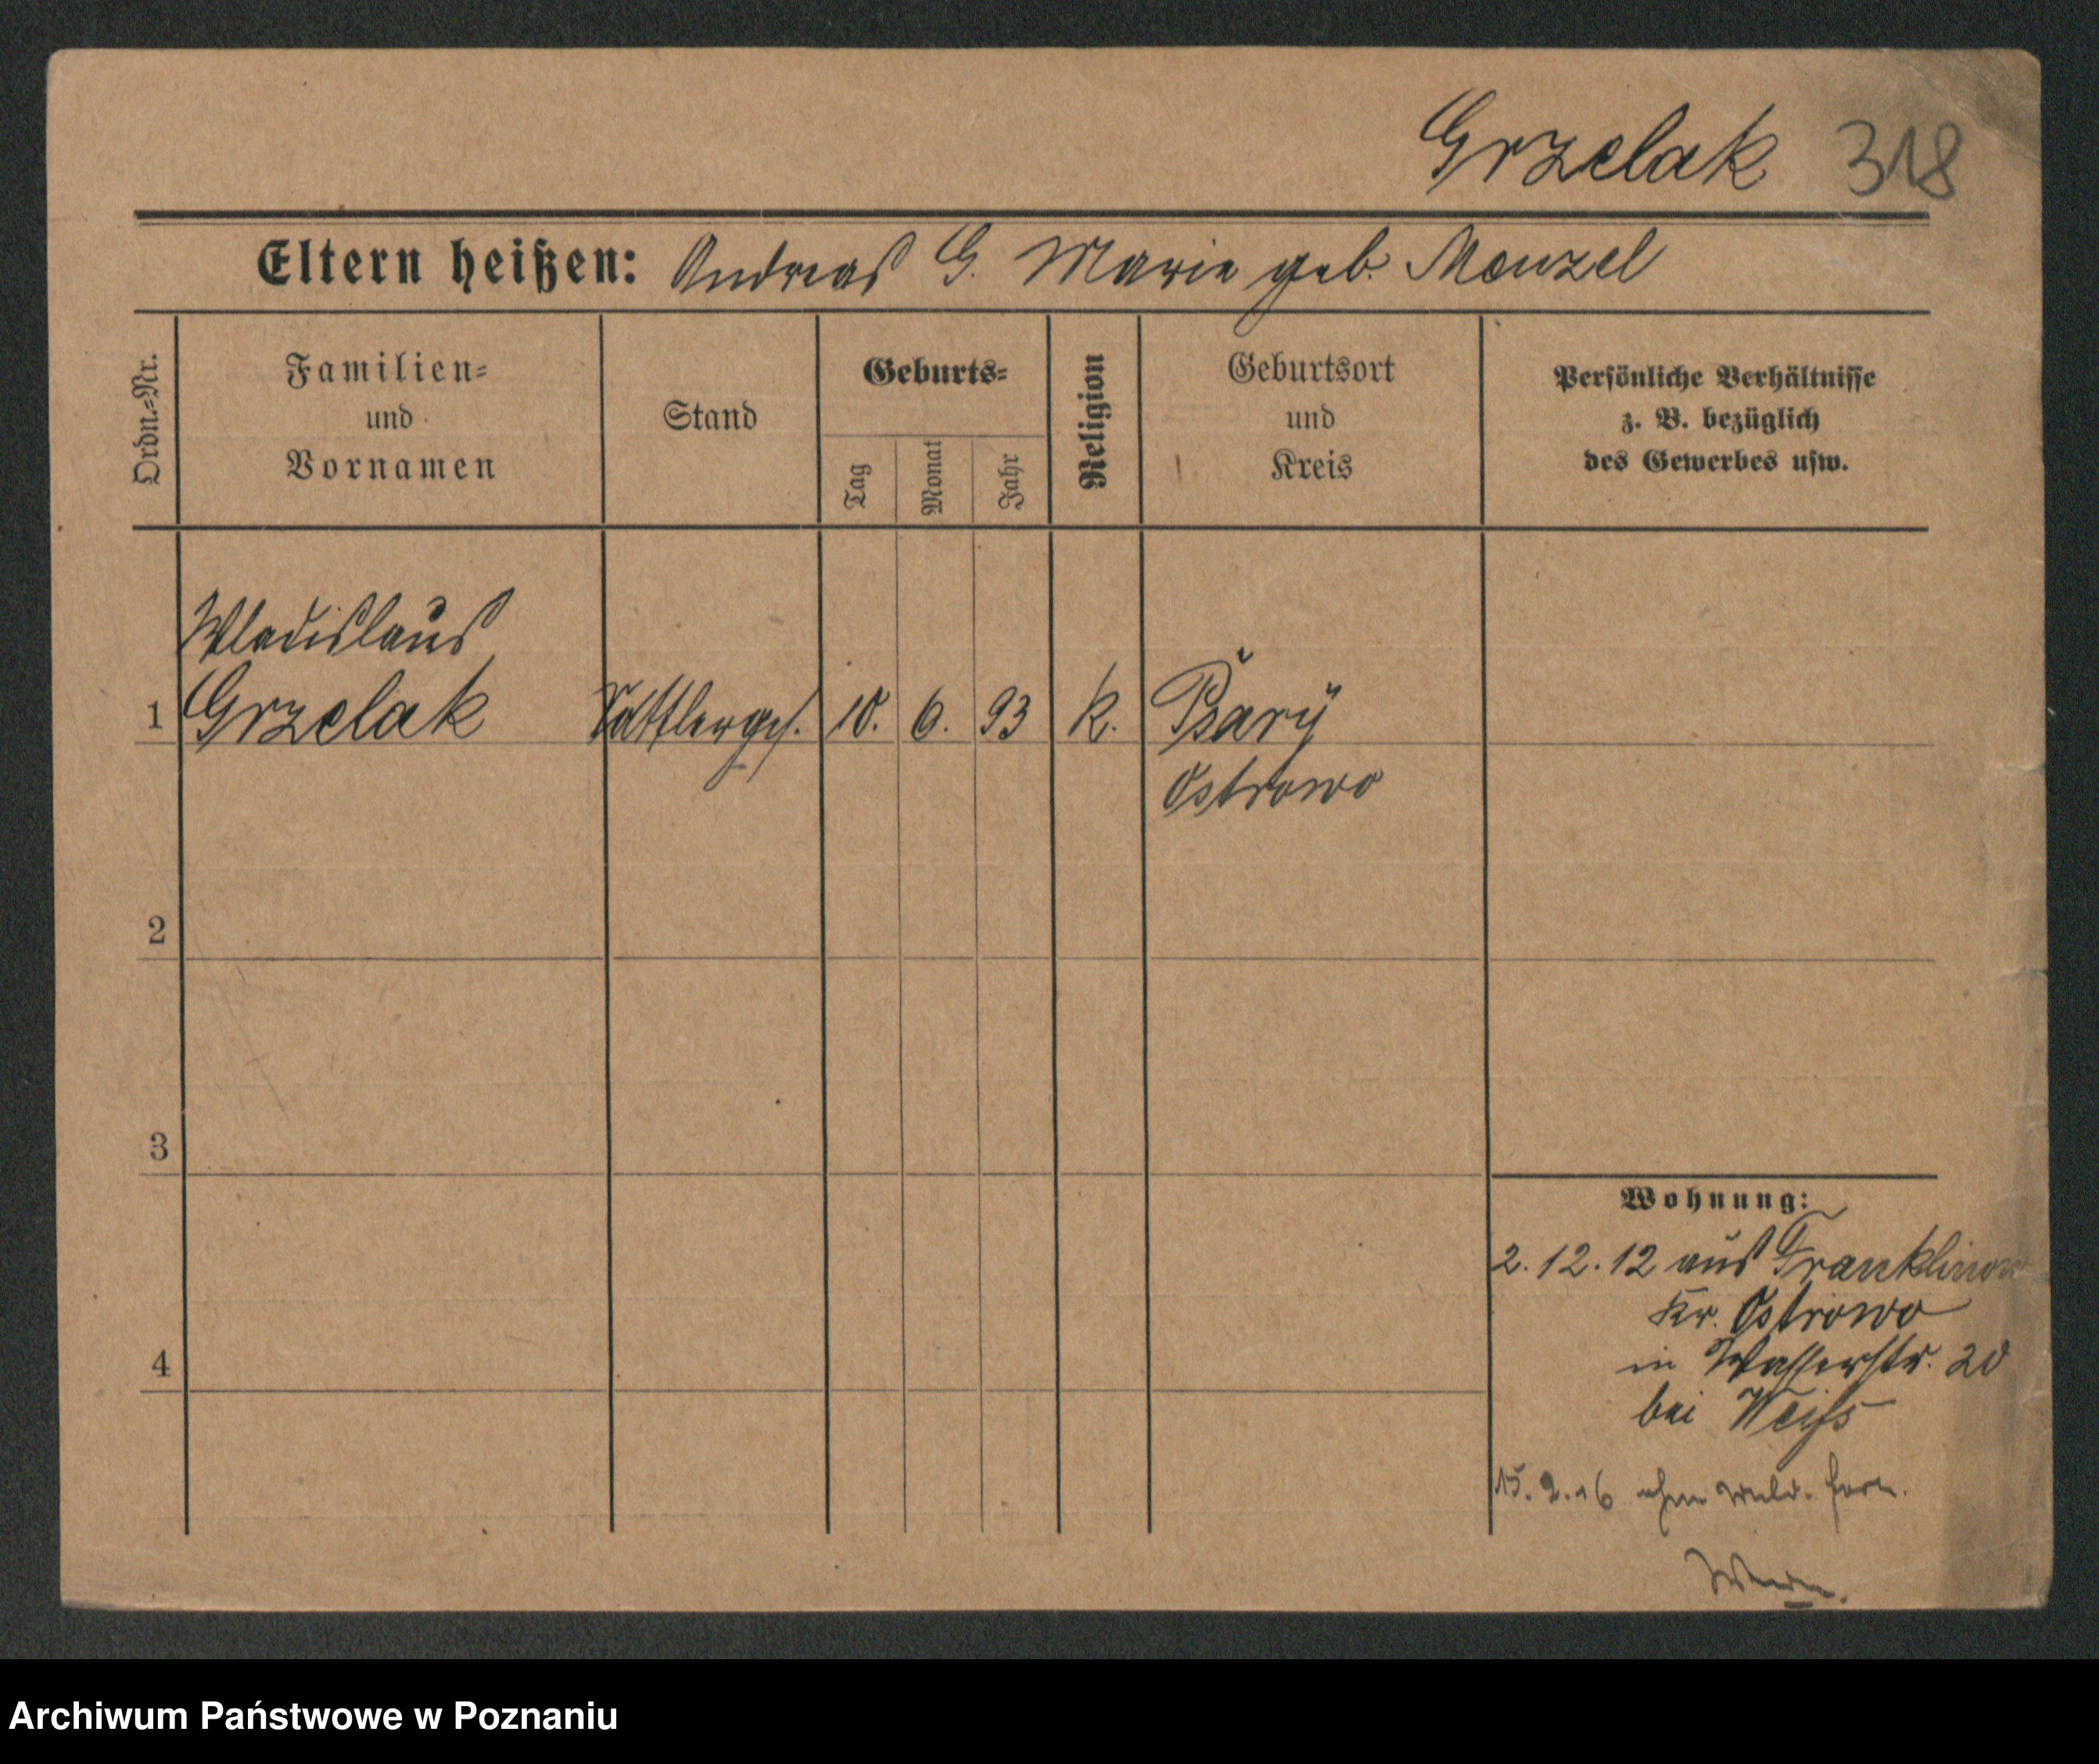 Grzelak 318
Eltern heißen: Andreas G. Marie geb. Menzel
Ordn.=Nr.
Familien=
und
Vornamen
Stand
Geburts=
Tag
Monat
Jahr
Religion
Geburtsort
und
Kreis
Persönliche Verhältnisse
z. B. bezüglich
des Gewerbes usw.
Wladislaus
1 Grzelak Sattlerges. 10. 6. 93 k. Psary
Ostrowo
2
3
4
Wohnung:
2.12.12 aus Franklinow
Kr. Ostrowo
in Wasserstr. 20
bei Weiss
15.2.16 ohne Meld. fort.
Archiwum Państwowe w Poznaniu